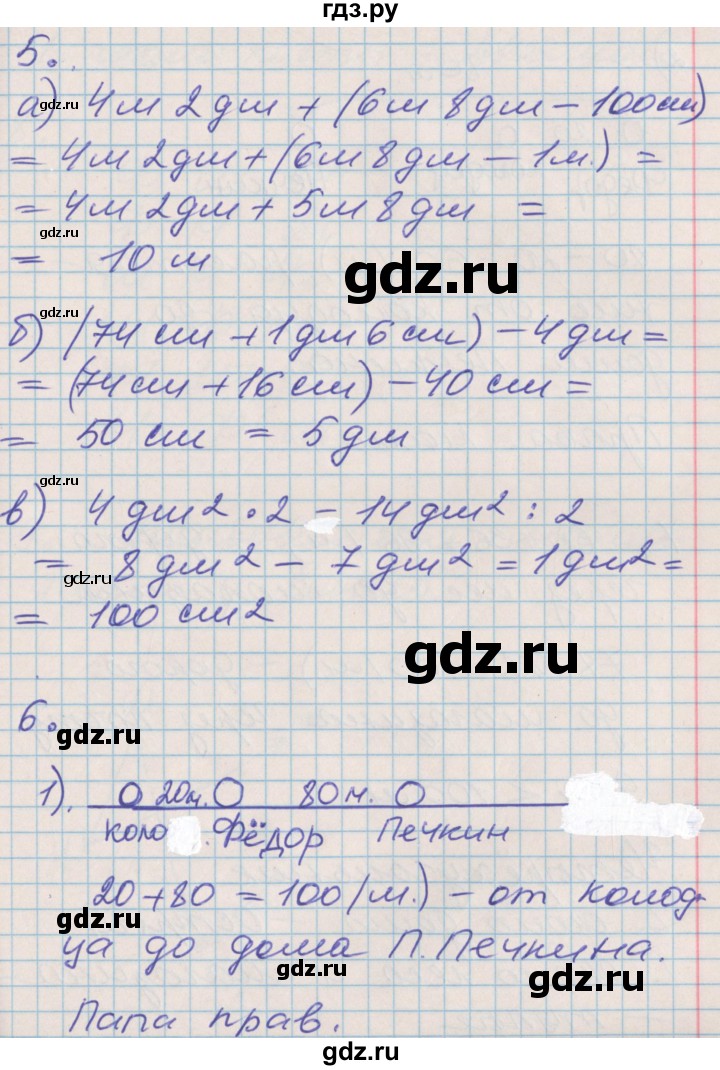 гдз.ру
5.
а) 4м 2дм + (6м 8дм - 100см)
= 4м 2дм + (6м 8дм - 1м.) =
= 4м 2дм + 5м 8дм =
= 10 м
gdz.ru
б) (74 см + 1дм 6см) - 4дм =
= (74см + 16см) - 40см =
= 50 см = 5дм
в) 4 дм2 · 2 - 14дм2 : 2
= 8дм2 - 7дм2 = 1дм2 =
= 100 см2
gdz.ru
6.
gdz.ru
1). 20м. 80м.
коло . Фёдор Печкин
20 + 80 = 100 (м.) - от колод-
ца до дома П. Печкина.
Папа прав.
gdz.ru
gdz.ru
gdz.ru
gdz.ru
gdz.ru
gdz.ru
gdz.ru
gdz.ru
gdz.ru
gdz.ru